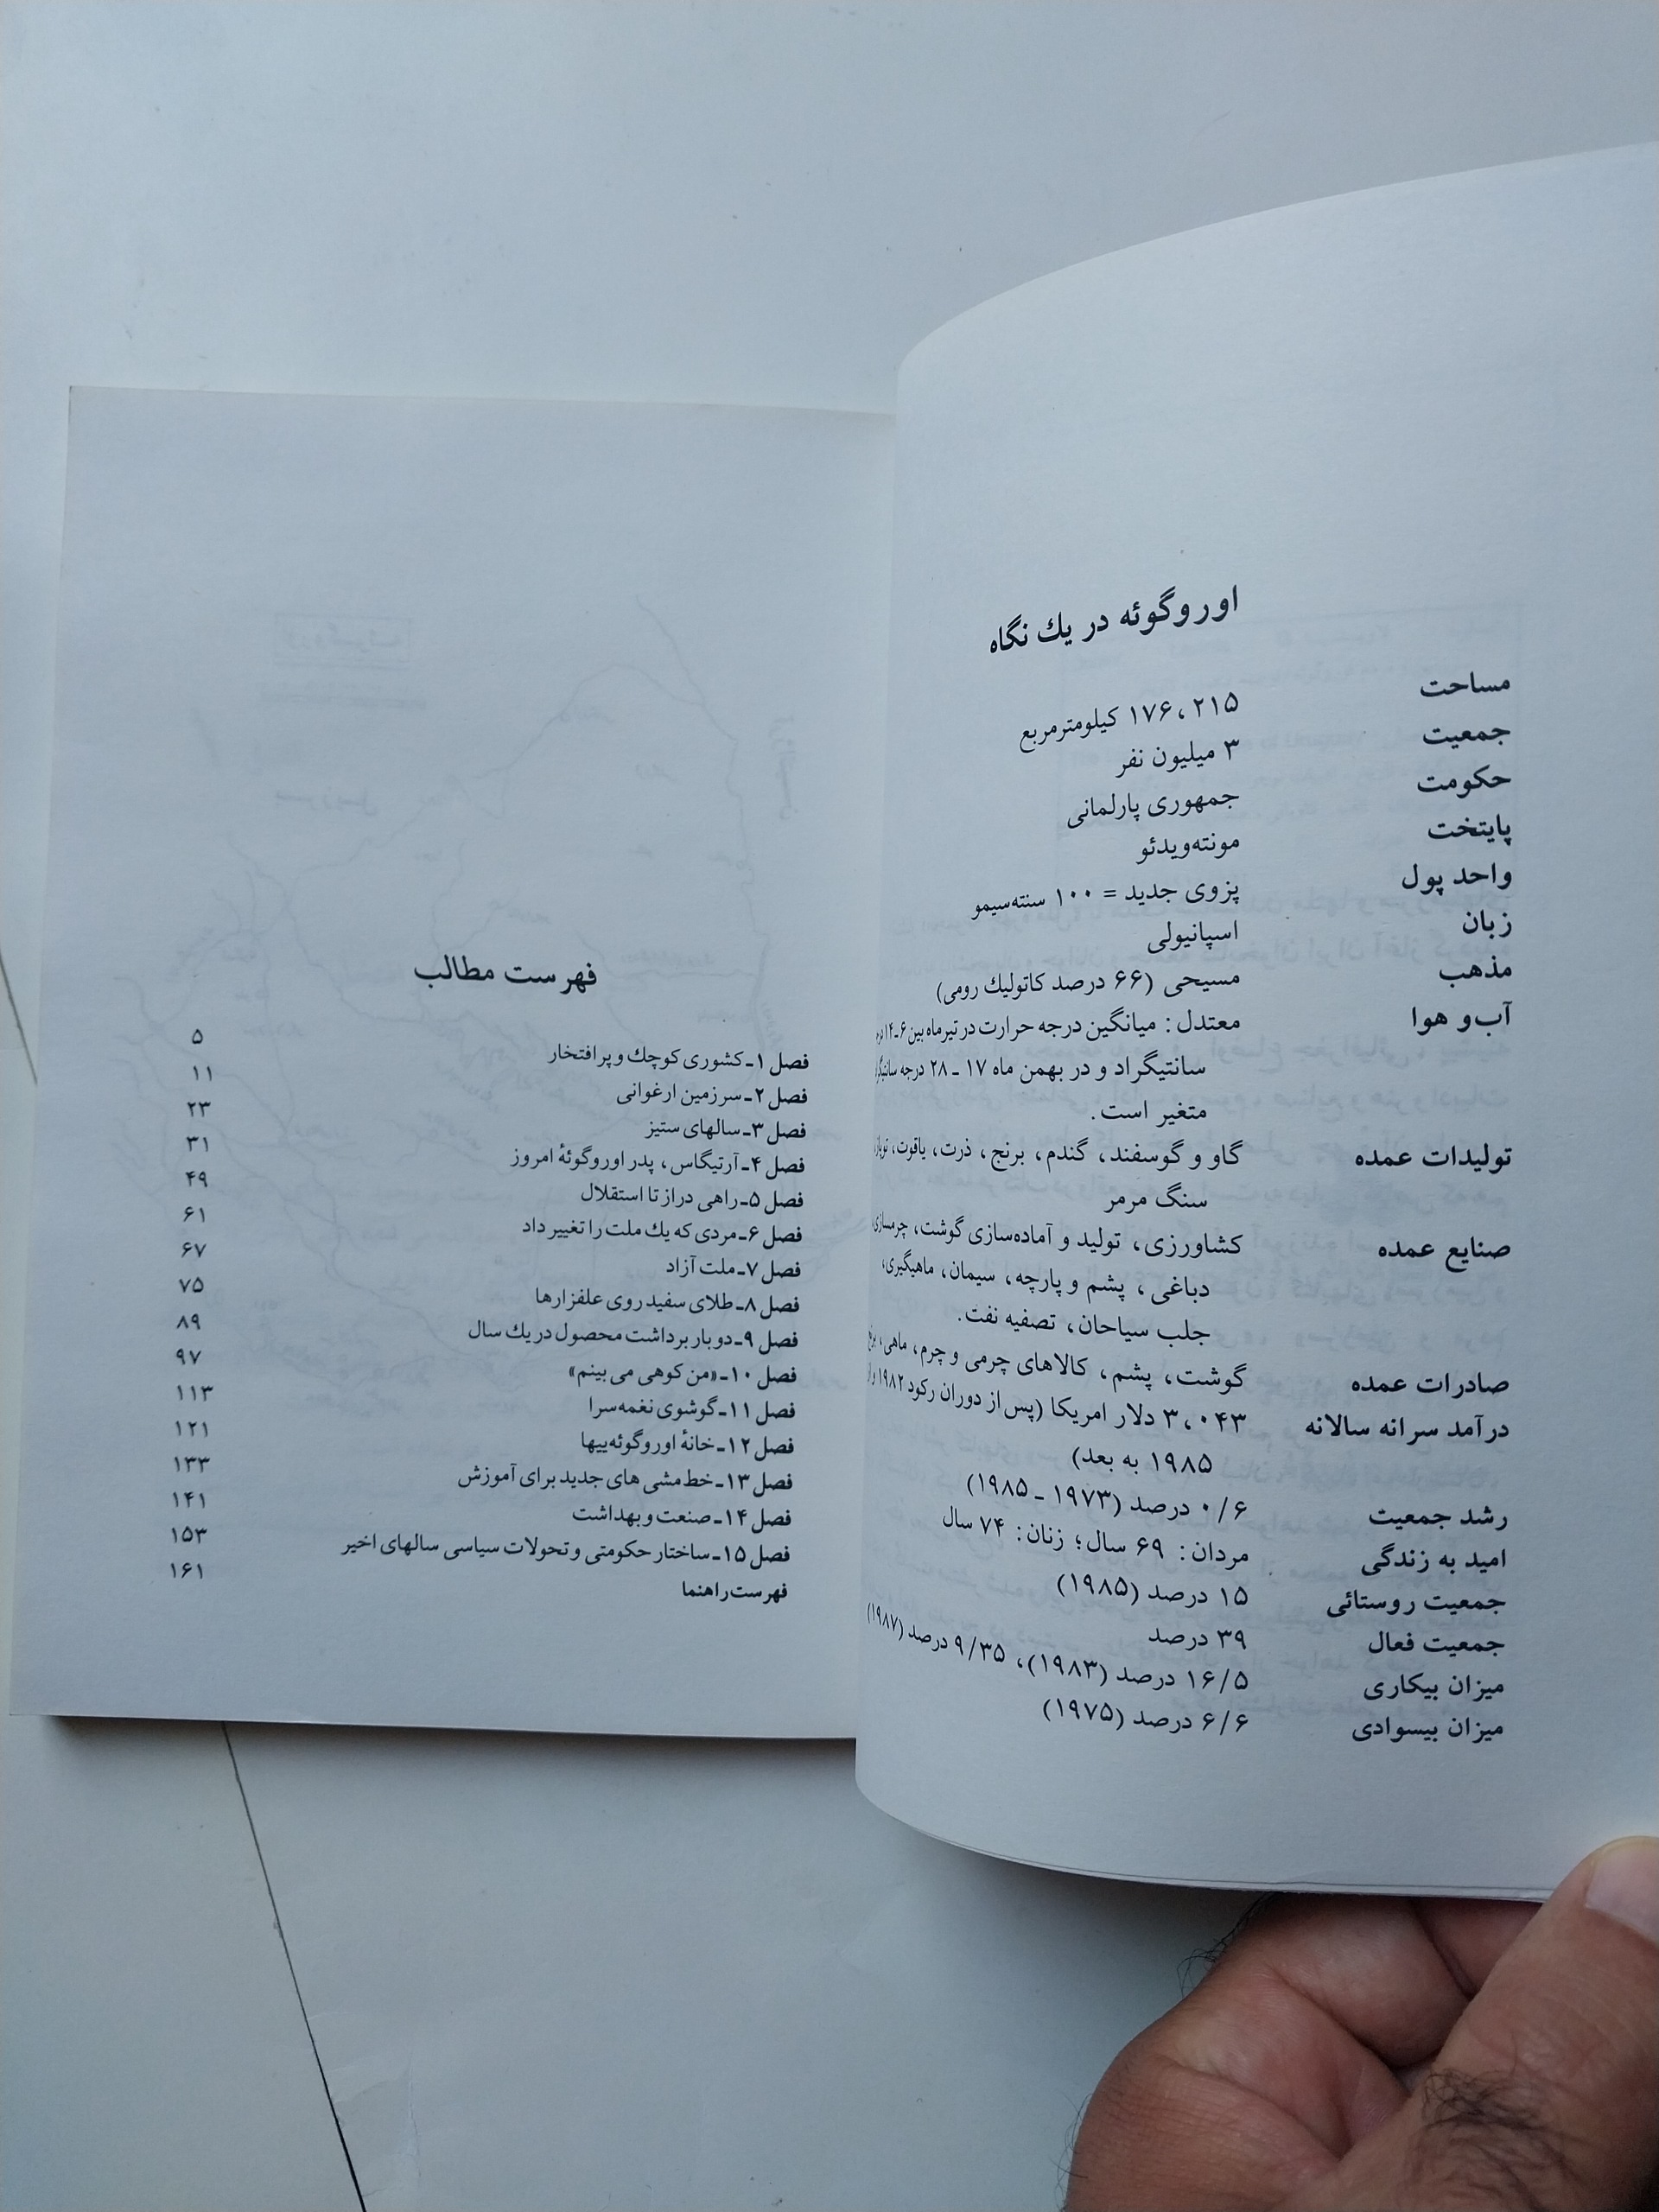 اوروگوئه در يك نگاه
مساحت ۱۷۶،۲۱۵ کیلومترمربع
جمعیت ۳ میلیون نفر
حکومت جمهوری پارلمانی
پایتخت مونته‌ویدئو
واحد پول پزوی جدید = ۱۰۰ سنته‌سیمو
زبان اسپانیولی
مذهب مسیحی (۶۶ درصد کاتولیك رومی)
آب‌و هوا معتدل: میانگین درجه حرارت در تیرماه بین ۶-۱۴
سانتیگراد و در بهمن ماه ۱۷ - ۲۸ درجه
متغیر است.
تولیدات عمده گاو و گوسفند، گندم، برنج، ذرت، یاقوت،
سنگ مرمر
صنایع عمده کشاورزی، تولید و آماده‌سازی گوشت، چرمسازی،
دباغی، پشم و پارچه، سیمان، ماهیگیری،
جلب سیاحان، تصفیه نفت.
صادرات عمده گوشت، پشم، کالاهای چرمی و چرم، ماهی،
درآمد سرانه سالانه ۳،۰۴۳ دلار امریکا (پس از دوران رکود ۱۹۸۲
۱۹۸۵ به بعد)
رشد جمعیت ۰/۶ درصد (۱۹۷۳ - ۱۹۸۵)
امید به زندگی مردان: ۶۹ سال؛ زنان: ۷۴ سال
جمعیت روستائی ۱۵ درصد (۱۹۸۵)
جمعیت فعال ۳۹ درصد
میزان بیکاری ۱۶/۵ درصد (۱۹۸۳)، ۹/۳۵ درصد (۱۹۸۷)
میزان بیسوادی ۶/۶ درصد (۱۹۷۵)
فهرست مطالب
فصل ۱ـ کشوری کوچك و پرافتخار ۵
فصل ۲ـ سرزمین ارغوانی ۱۱
فصل ۳ـ سالهای ستیز ۲۳
فصل ۴ـ آرتیگاس، پدر اوروگوئهٔ امروز ۳۱
فصل ۵ـ راهی دراز تا استقلال ۴۹
فصل ۶ـ مردی که یك ملت را تغییر داد ۶۱
فصل ۷ـ ملت آزاد ۶۷
فصل ۸ـ طلای سفید روی علفزارها ۷۵
فصل ۹ـ دوبار برداشت محصول در یك سال ۸۹
فصل ۱۰ـ «من کوهی می بینم» ۹۷
فصل ۱۱ـ گوشوی نغمه‌سرا ۱۱۳
فصل ۱۲ـ خانهٔ اوروگوئه‌ییها ۱۲۱
فصل ۱۳ـ خط مشی های جدید برای آموزش ۱۳۳
فصل ۱۴ـ صنعت و بهداشت ۱۴۱
فصل ۱۵ـ ساختار حکومتی و تحولات سیاسی سالهای اخیر ۱۵۳
فهرست راهنما ۱۶۱